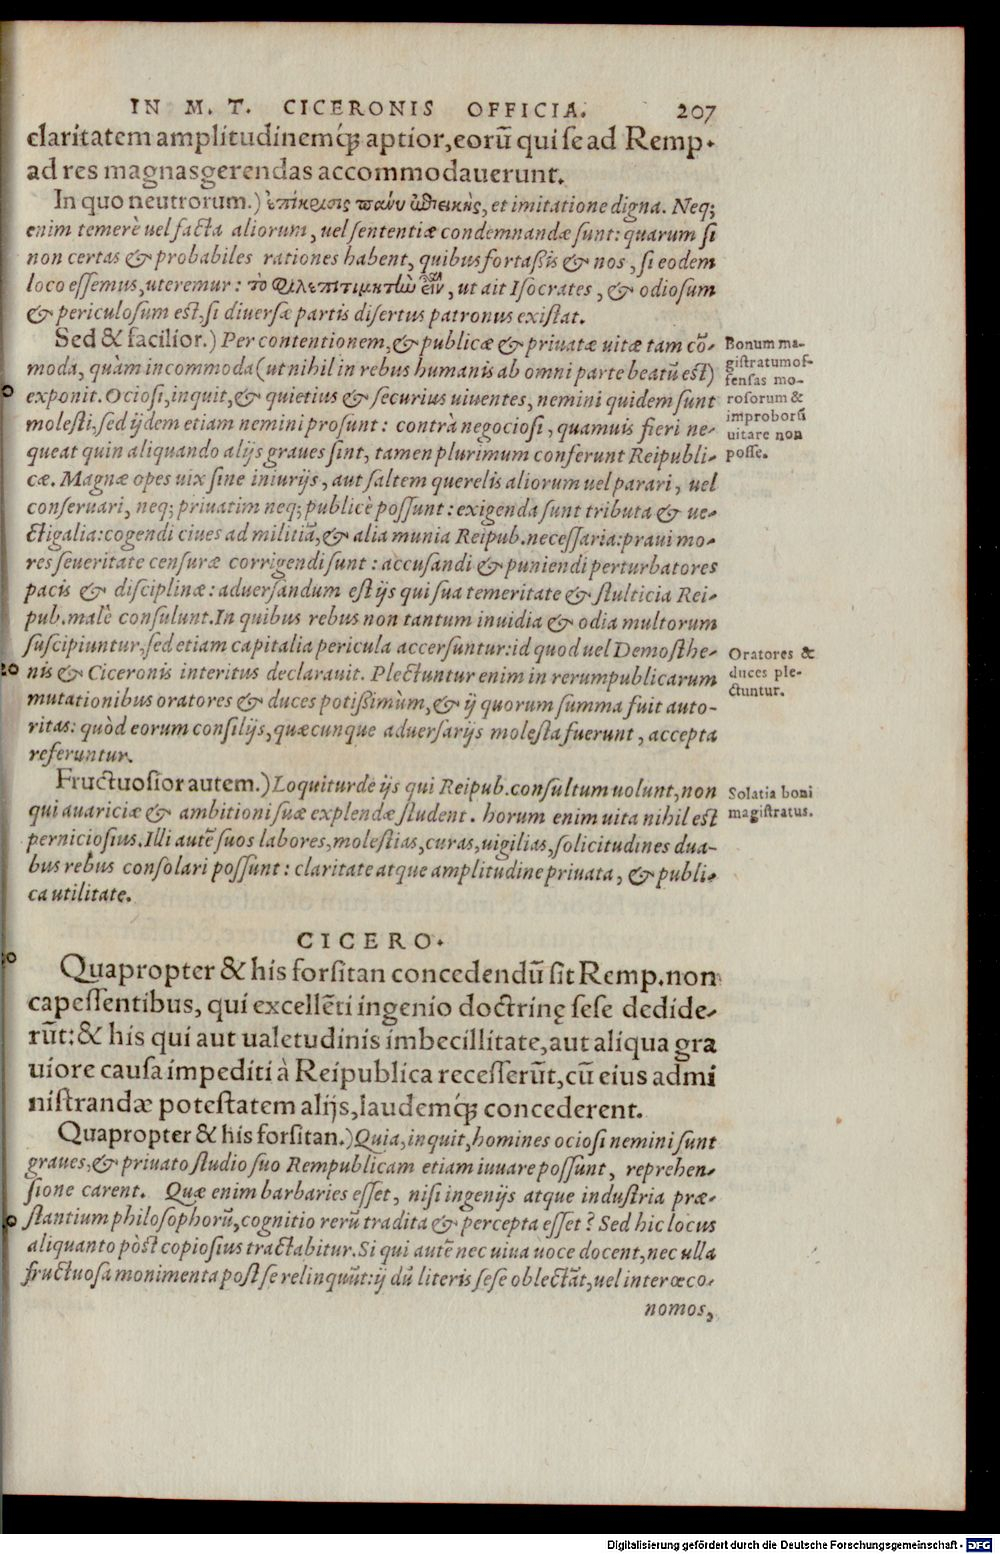 IN M. T. CICERONIS OFFICIA. 207
claritatem amplitudinemq́; aptior, eorū qui se ad Remp.
ad res magnas gerendas accommodauerunt.
In quo neutrorum.) ἐπίκρισις πάνυ ἠθικὴ, et imitatione digna. Neq;
enim temerè uel facta aliorum, uel sententiæ condemnandæ sunt: quarum si
non certas & probabiles rationes habent, quibus fortaßis & nos, si eodem
loco essemus, uteremur: τὸ φιλεπιτιμητὴν εἶναι, ut ait Isocrates, & odiosum
& periculosum est, si diuersæ partis disertus patronus existat.
Sed & facilior.) Per contentionem, & publicæ & priuatæ uitæ tam cō-
moda, quàm incommoda (ut nihil in rebus humanis ab omni parte beatū est)
exponit. Ociosi, inquit, & quietius & securius uiuentes, nemini quidem sunt
molesti, sed ijdem etiam nemini prosunt: contrà negociosi, quamuis fieri ne-
queat quin aliquando alijs graues sint, tamen plurimum conferunt Reipubli-
cæ. Magnæ opes uix sine iniurijs, aut saltem querelis aliorum uel parari, uel
conseruari, neq; priuatim neq; publicè possunt: exigenda sunt tributa & ue-
ctigalia: cogendi ciues ad militiā, & alia munia Reipub. necessaria: praui mo-
res seueritate censuræ corrigendi sunt: accusandi & puniendi perturbatores
pacis & disciplinæ: aduersandum est ijs qui sua temeritate & stulticia Rei-
pub. malè consulunt. In quibus rebus non tantum inuidia & odia multorum
suscipiuntur, sed etiam capitalia pericula accersuntur: id quod uel Demosthe-
nis & Ciceronis interitus declarauit. Plectuntur enim in rerumpublicarum
mutationibus oratores & duces potißimùm, & ij quorum summa fuit auto-
ritas: quòd eorum consilijs, quæcunque aduersarijs molesta fuerunt, accepta
referuntur.
Bonum ma-
gistratum of-
fensas mo-
rosorum &
improborū
uitare non
posse.
20
Oratores &
duces ple-
ctuntur.
Fructuosior autem.) Loquitur de ijs qui Reipub. consultum uolunt, non
qui auariciæ & ambitioni suæ explendæ student. horum enim uita nihil est
perniciosius. Illi autē suos labores, molestias, curas, uigilias, solicitudines dua-
bus rebus consolari possunt: claritate atque amplitudine priuata, & publi-
ca utilitate.
Solatia boni
magistratus.
CICERO.
Quapropter & his forsitan concedendū sit Remp. non
capessentibus, qui excellēti ingenio doctrinę sese dedide-
rūt: & his qui aut ualetudinis imbecillitate, aut aliqua gra
uiore causa impediti à Reipublica recesserūt, cū eius admi
nistrandæ potestatem alijs, laudemq́; concederent.
Quapropter & his forsitan.) Quia, inquit, homines ociosi nemini sunt
graues, & priuato studio suo Rempublicam etiam iuuare possunt, reprehen-
sione carent. Quæ enim barbaries esset, nisi ingenijs atque industria præ-
stantium philosophorū, cognitio rerū tradita & percepta esset? Sed hic locus
aliquanto pòst copiosius tractabitur. Si qui autē nec uiua uoce docent, nec ulla
fructuosa monimenta post se relinquūt: ij dū literis sese oblectāt, uel inter œco-
nomos,
Digitalisierung gefördert durch die Deutsche Forschungsgemeinschaft - DFG